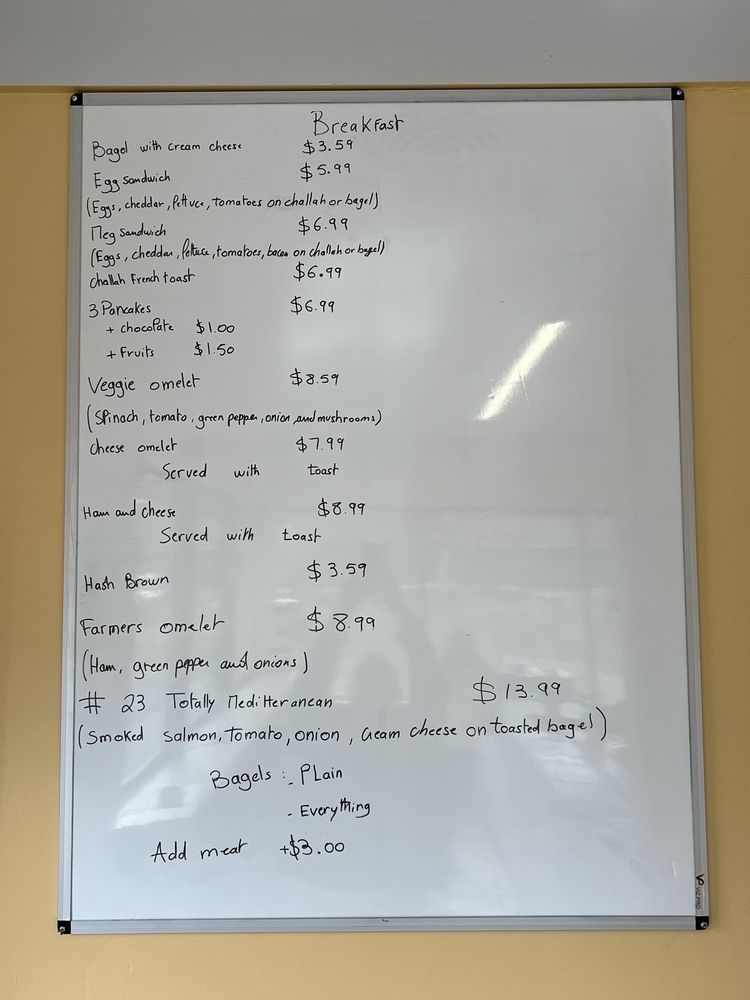 Breakfast
Bagel with cream cheese $3.59
Egg Sandwich $5.99
(Eggs, cheddar, lettuce, tomatoes on challah or bagel)
Meg Sandwich $6.99
(Eggs, cheddar, lettuce, tomatoes, bacon on challah or bagel)
challah French toast $6.99
3 Pancakes $6.99
+ chocolate $1.00
+ Fruits $1.50
Veggie omelet $8.59
(Spinach, tomato, green pepper, onion and mushrooms)
cheese omelet $7.99
Served with toast
Ham and cheese $8.99
Served with toast
Hash Brown $3.59
Farmers omelet $8.99
(Ham, green pepper and onions)
# 23 Totally Mediterranean $13.99
(Smoked Salmon, Tomato, onion, Cream cheese on toasted bagel)
Bagels: - PLain
- Everything
Add meat +$3.00
VIZ-PRO